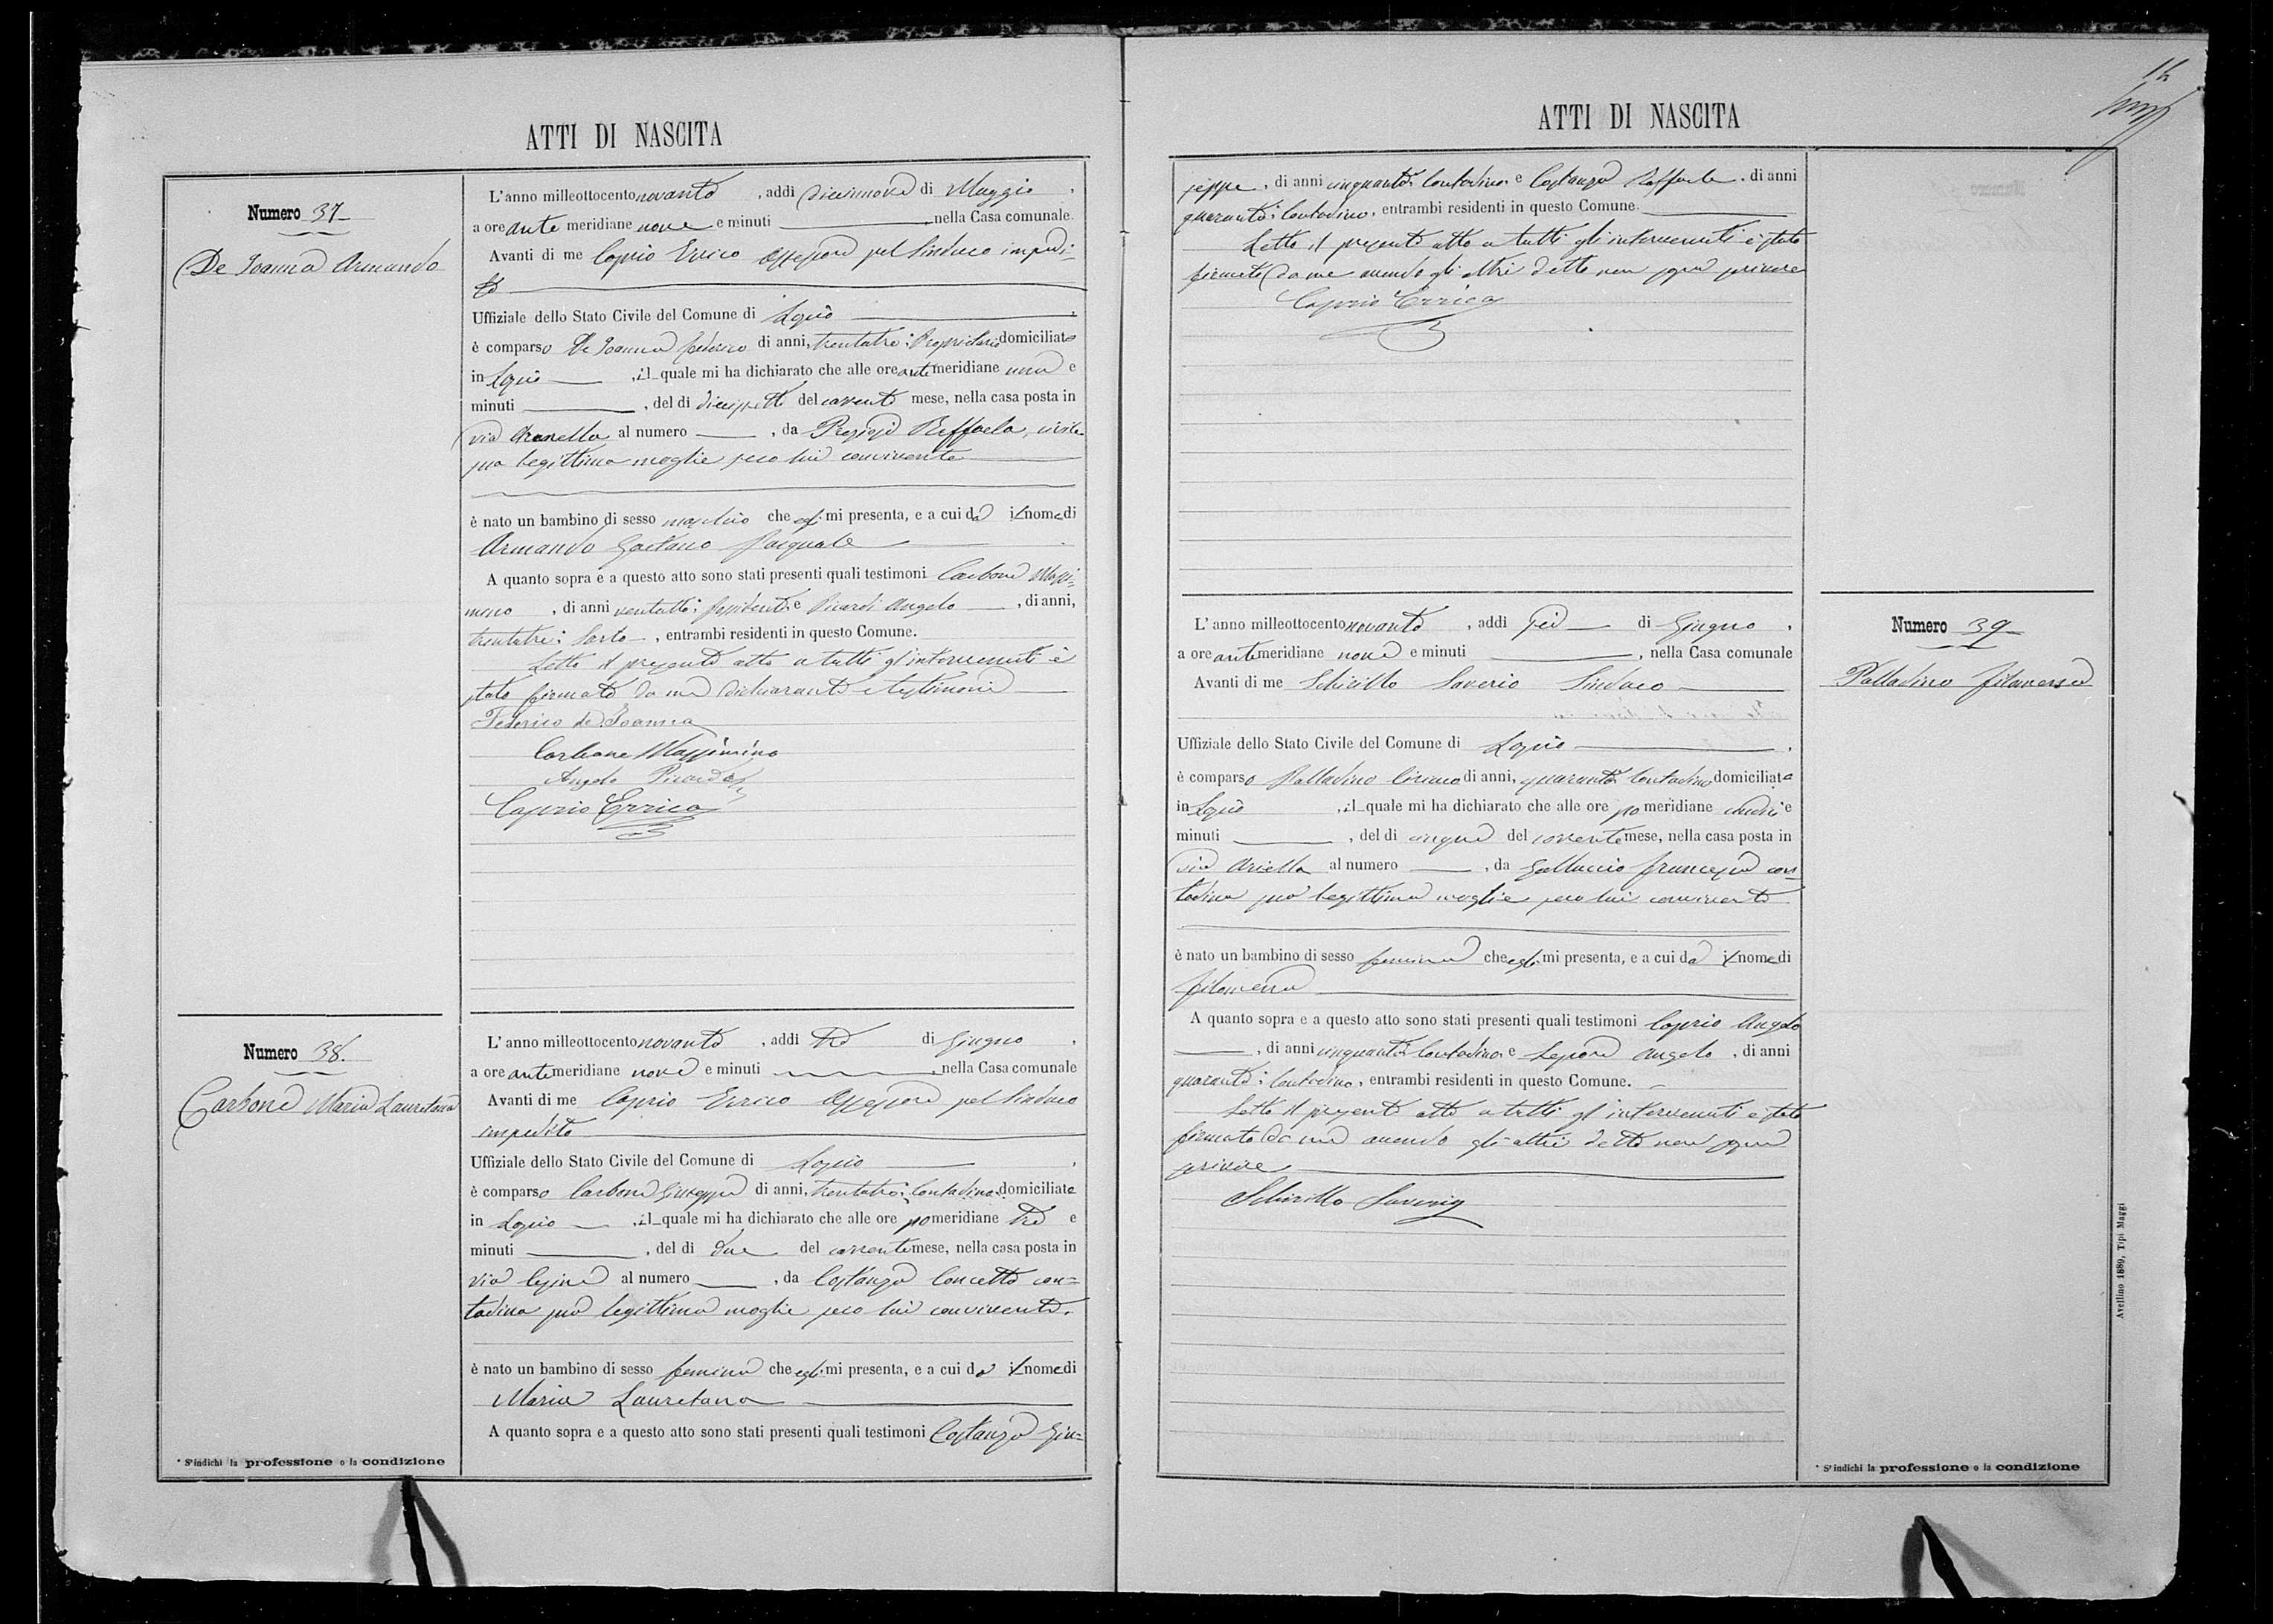 ATTI DI NASCITA
Numero 37
De Ioanna Armando
L'anno milleottocentonovanta, addì diciannove di Maggio,
a ore ante meridiane nove e minuti, nella Casa comunale.
Avanti di me Caprio Errico Assessore pel Sindaco impedi-
to
Uffiziale dello Stato Civile del Comune di
è comparso De Ioanna Federico di anni, trentatre: Proprietario domiciliato
in, il quale mi ha dichiarato che alle ore antimeridiane una e
minuti, del dì diecisette del corrente mese, nella casa posta in
via al numero, da Preziosi Raffaela, civile
sua legittima moglie seco lui convivente
è nato un bambino di sesso maschio che egli mi presenta, e a cui dà il nome di
Armando Gaetano Pasquale
A quanto sopra e a questo atto sono stati presenti quali testimoni Carbone Massi-
mino, di anni ventotto: Possidente e Picardi Angelo, di anni,
trentatre: Sarto, entrambi residenti in questo Comune.
Letto il presente atto a tutti gl'intervenuti è
stato firmato da me dichiarante e testimoni
Federico de Ioanna
Carbone Massimino
Angelo Picardi
Caprio Errico
Numero 38.
Carbone Maria Lauretana
L'anno milleottocentonovanta, addì tre di Giugno,
a ore antimeridiane nove e minuti, nella Casa comunale
Avanti di me Caprio Errico Assessore pel Sindaco
impedito
Uffiziale dello Stato Civile del Comune di
è comparso Carbone Giuseppe di anni, trentatre: Contadino domiciliato
in, il quale mi ha dichiarato che alle ore pomeridiane tre e
minuti, del dì due del corrente mese, nella casa posta in
via al numero, da Costanza Concetta con=
tadina sua legittima moglie seco lui convivente.
è nato un bambino di sesso femina che egli mi presenta, e a cui dà il nome di
Maria Lauretana
A quanto sopra e a questo atto sono stati presenti quali testimoni Costanza Giu=
* S'indichi la professione o la condizione
ATTI DI NASCITA
seppe, di anni cinquanta Contadino e Costanza Raffaele, di anni
quaranta: Contadino, entrambi residenti in questo Comune.
Letto il presente atto a tutti gl'intervenuti è stato
firmato da me avendo gli altri detto non saper scrivere
Caprio Errico
L'anno milleottocentonovanta, addì sei di Giugno,
a ore antimeridiane nove e minuti, nella Casa comunale
Avanti di me Schirillo Saverio Sindaco
Uffiziale dello Stato Civile del Comune di
è comparso Palladino Ciriaco di anni, quaranta Contadino domiciliato
in, il quale mi ha dichiarato che alle ore pomeridiane undici e
minuti, del dì cinque del corrente mese, nella casa posta in
via Ariella al numero, da Galluccio Francesca con=
tadina sua legittima moglie seco lui convivente
è nato un bambino di sesso femina che egli mi presenta, e a cui dà il nome di
Filomena
A quanto sopra e a questo atto sono stati presenti quali testimoni Caprio Angelo
, di anni cinquanta Contadino e Lepore Angelo, di anni
quaranta: Contadino, entrambi residenti in questo Comune.
Letto il presente atto a tutti gl'intervenuti è stato
firmato da me avendo gli altri detto non saper
scrivere
Schirillo Saverio
Numero 39
Palladino Filomena
* S'indichi la professione o la condizione
Avellino 1889, Tipi Maggi